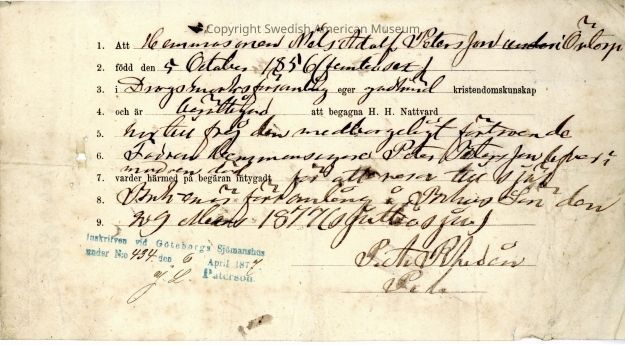 Copyright Swedish American Museum
1. Att Hemmasonen Nels Adolf Peterson i
2. född den 5 October 1856 (femtiosex)
3. i Dragsmarks församling eger godkänd kristendomskunskap
4. och är berättigad att begagna H. H. Nattvard
5. den medborgeligt förtroende
6. Fadren Hemmansegare Peter Peterson
7. varder härmed på begäran intygadt för att resa till sjös
8. församling i Bohus Län den
9. 29 Mars 1877 (sjuttiosju)
Inskrifven vid Göteborgs Sjömanshus
under N:o 434 den 6 April 1877
Paterson